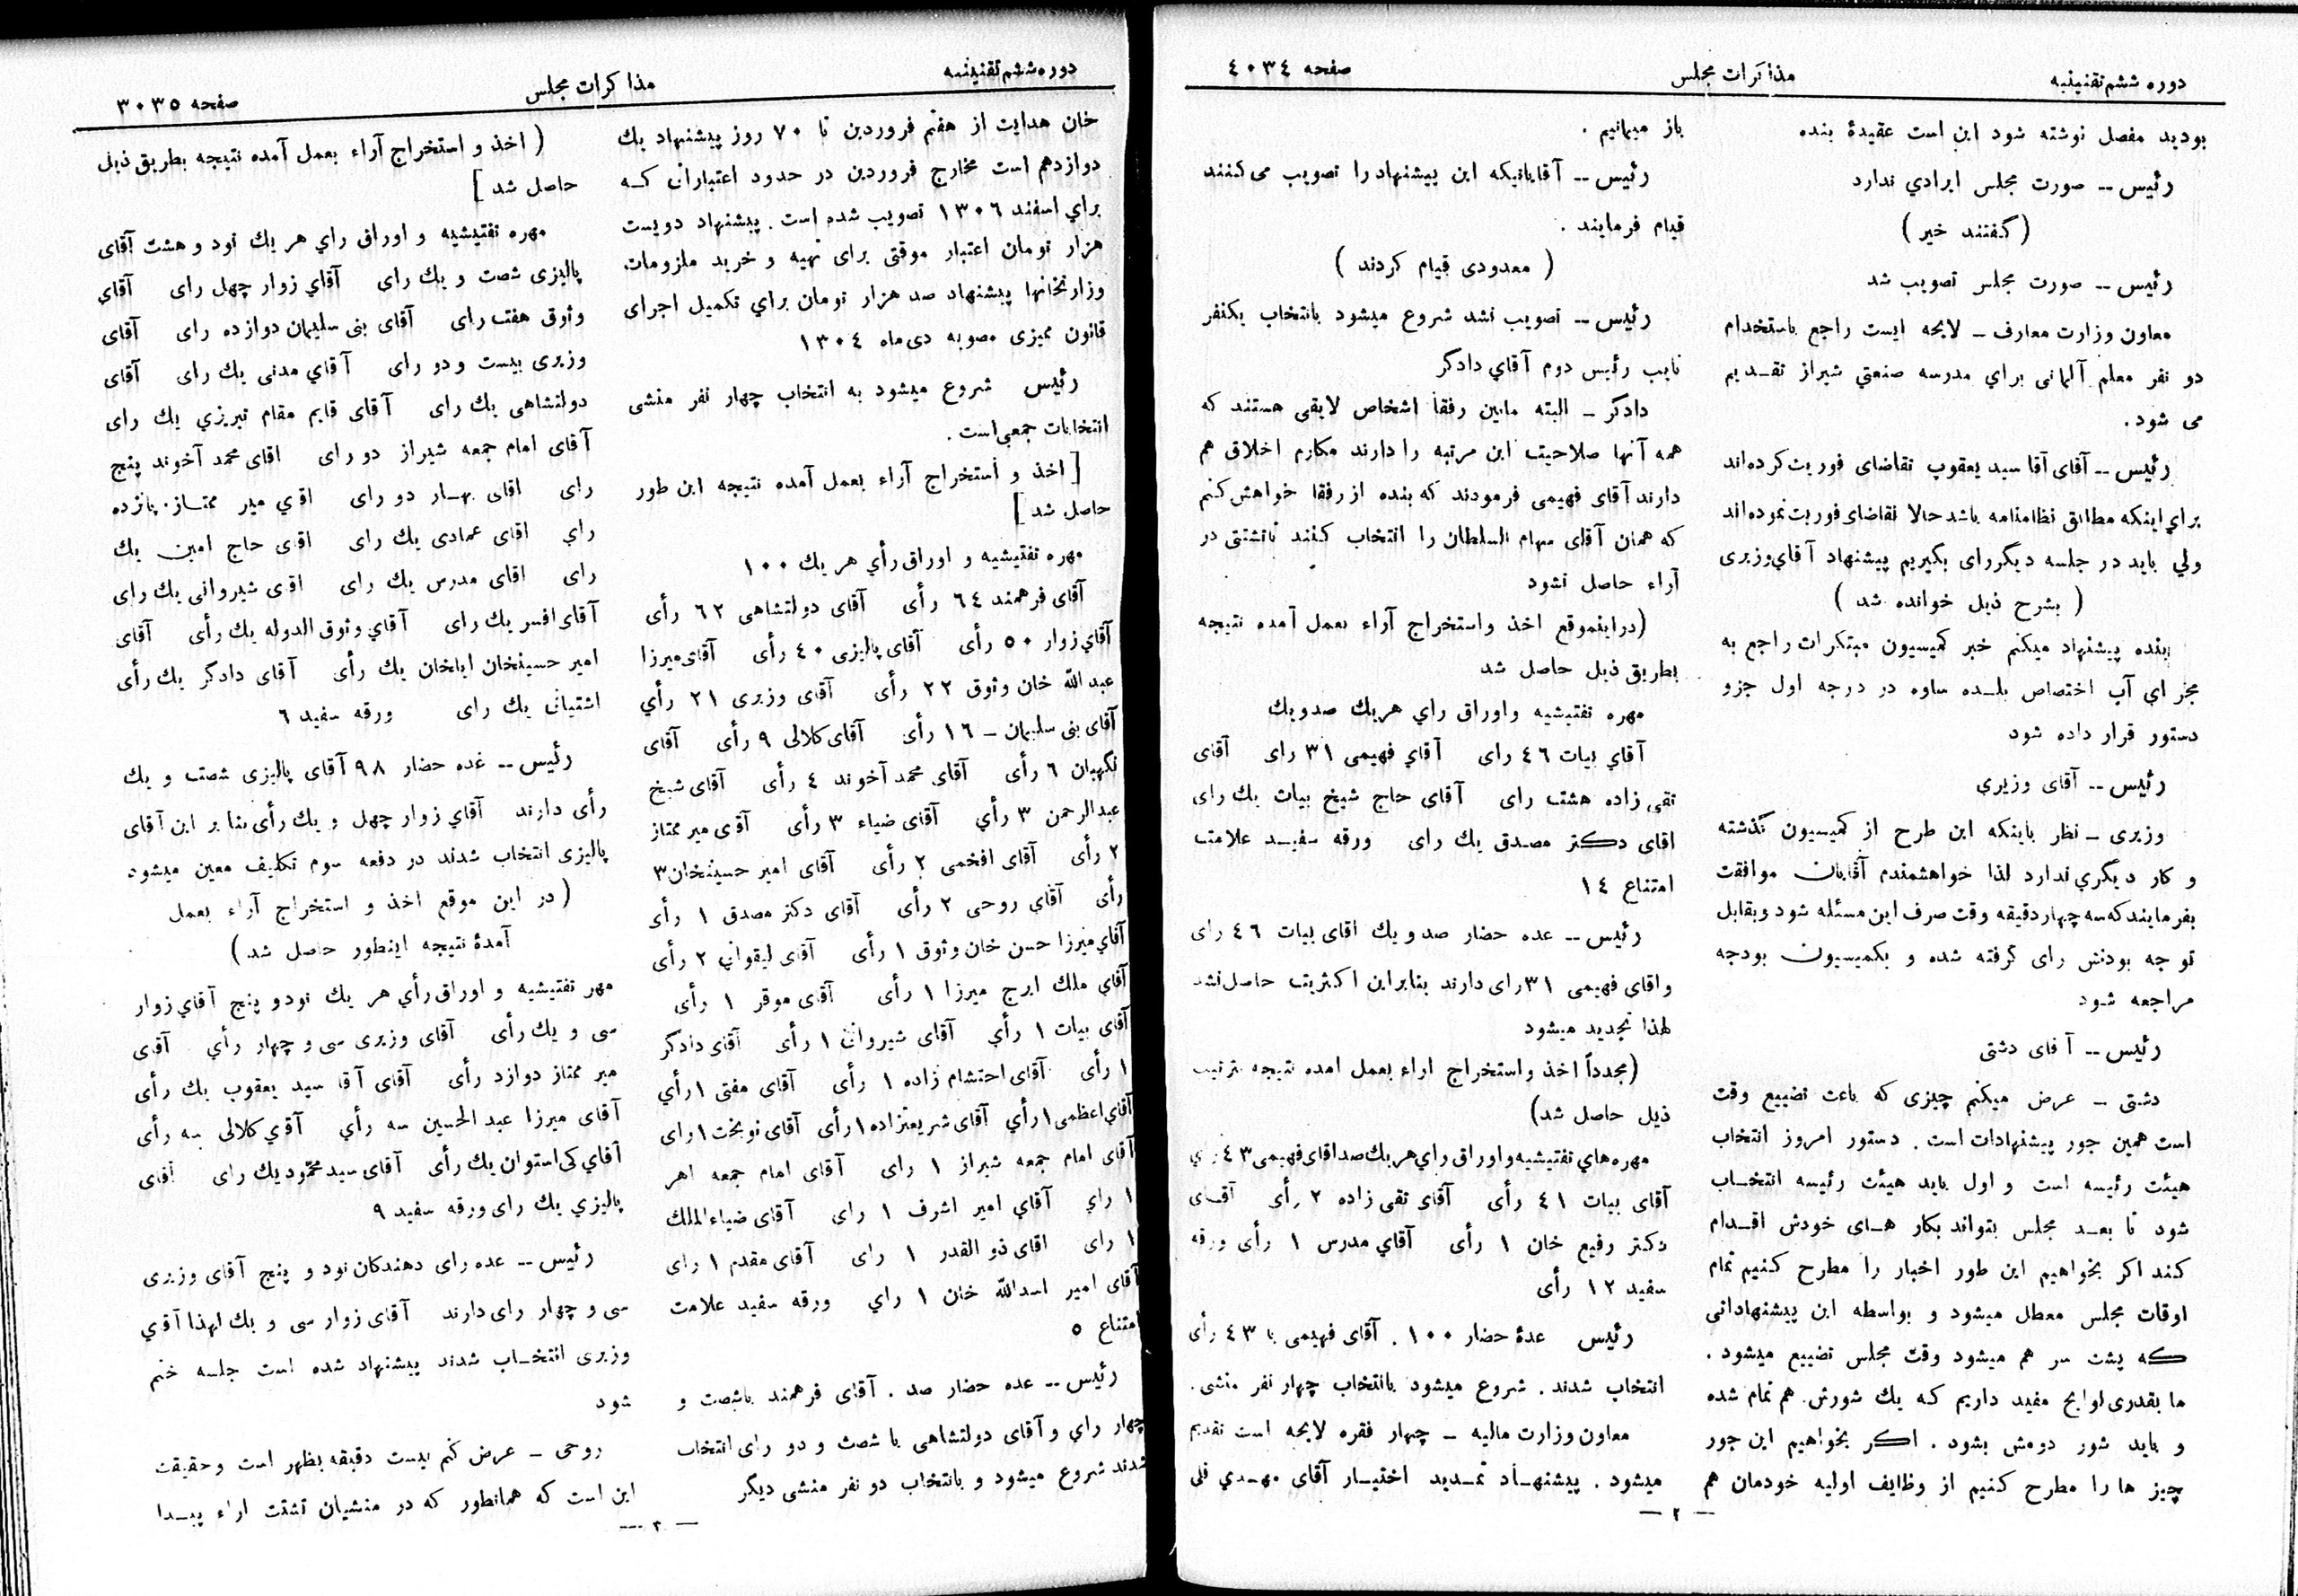 دوره ششم تقنینیه
مذاکرات مجلس
صفحه ٤٠٣٤
بودید مفصل نوشته شود این است عقیدهٔ بنده
رئیس -- صورت مجلس ایرادي ندارد
( گفتند خیر )
رئیس -- صورت مجلس تصویب شد
معاون وزارت معارف - لایحه ایست راجع باستخدام
دو نفر معلم آلمانی براي مدرسه صنعتي شیراز تقـدیم
می شود .
رئیس -- آقای آقا سید یعقوب تقاضای فوریت کرده‌اند
براي اینکه مطابق نظامنامه باشد حالا تقاضای فوریت نموده‌اند
ولي باید در جلسه دیگر رای بگیریم پیشنهاد آقاي وزیری
( بشرح ذیل خوانده شد )
بنده پیشنهاد میکنم خبر کمیسیون مبتکرات راجع به
مجرای آب اختصاص بلـده ساوه در درجه اول جزو
دستور قرار داده شود
رئیس -- آقای وزیري
وزیری - نظر باینکه این طرح از کمیسیون گذشته
و کار دیگري ندارد لذا خواهشمندم آقایان موافقت
بفرمایند که سه چهار دقیقه وقت صرف این مسئله شود و بقابل
توجه بودنش رای گرفته شده و بکمیسیون بودجه
مراجعه شود
رئیس -- آقای دشتی
دشتی - عرض میکنم چیزی که باعث تضییع وقت
است همین جور پیشنهادات است . دستور امروز انتخاب
هیئت رئیسه است و اول باید هیئت رئیسه انتخـاب
شود تا بعـد مجلس بتواند بکار هـای خودش اقـدام
کند اگر بخواهیم این طور اخبار را مطرح کنیم تمام
اوقات مجلس معطل میشود و بواسطه این پیشنهاداتی
که پشت سر هم میشود وقت مجلس تضییع میشود .
ما بقدری لوایح مفید داریم که یك شورش هم تمام شده
و باید شور دومش بشود . اگر بخواهیم این جور
چیز ها را مطرح کنیم از وظایف اولیه خودمان هم
باز میمانیم .
رئیس -- آقایانیکه این پیشنهاد را تصویب می‌کنند
قیام فرمایند .
( معدودی قیام کردند )
رئیس -- تصویب نشد شروع میشود بانتخاب یکنفر
نایب رئیس دوم آقاي دادگر
دادگر - البته مابین رفقا اشخاص لایقی هستند که
همه آنها صلاحیت این مرتبه را دارند مکارم اخلاق هم
دارند آقای فهیمی فرمودند که بنده از رفقا خواهش کنم
که همان آقای سهام السلطان را انتخاب کنند تا تشتتی در
آراء حاصل نشود
(دراینموقع اخذ واستخراج آراء بعمل آمده نتیجه
بطریق ذیل حاصل شد
مهره تفتیشیه واوراق راي هریك صدویك
آقاي بیات ٤٦ رای آقاي فهیمی ٣١ رای آقای
تقی زاده هشت رای آقای حاج شیخ بیات یك رای
اقای دکتر مصدق یك رای ورقه سفیـد علامت
امتناع ١٤
رئیس -- عده حضار صد و یك اقای بیات ٤٦ رای
واقای فهیمی ٣١ رای دارند بنابراین اکثریت حاصل نشد
لهذا تجدید میشود
(مجدداً اخذ واستخراج اراء بعمل امده نتیجه بترتیب
ذیل حاصل شد)
مهره هاي تفتیشیه و اوراق راي هر یك صد اقای فهیمی ٤٣ راي
آقای بیات ٤١ رأی آقای تقی زاده ٢ رأی آقـای
دکتر رفیع خان ١ رأی آقاي مدرس ١ رأی ورقه
سفید ١٢ رأی
رئیس عدهٔ حضار ١٠٠ . آقای فهیمی با ٤٣ رأی
انتخاب شدند . شروع میشود بانتخاب چهار نفر منشی .
معاون وزارت مالیه - چهار فقره لایحه است تقدیم
میشود . پیشنهـاد تمـدید اختیـار آقای مهـدي قلی
— ٢ —
دوره ششم تقنینیه
مذاکرات مجلس
صفحه ٣٠٣٥
خان هدایت از هفتم فروردین تا ٧٠ روز پیشنهاد یك
دوازدهم است مخارج فروردین در حدود اعتباراتی کـه
براي اسفند ١٣٠٦ تصویب شده است . پیشنهاد دویست
هزار تومان اعتبار موقتی برای تهیه و خرید ملزومات
وزارتخانها پیشنهاد صد هزار تومان براي تکمیل اجرای
قانون ممیزی مصوبه دی‌ماه ١٣٠٤
رئیس شروع میشود به انتخاب چهار نفر منشی
انتخابات جمعی‌است .
[ اخذ و استخراج آراء بعمل آمده نتیجه این طور
حاصل شد ]
مهره تفتیشیه و اوراق رأي هر یك ١٠٠
آقای فرهمند ٦٤ رأی آقای دولتشاهی ٦٢ رأی
آقاي زوار ٥٠ رأی آقای پالیزی ٤٠ رأی آقای میرزا
عبدالله خان وثوق ٢٢ رأی آقای وزیری ٢١ رأي
آقای بنی سلیمان - ١٦ رأی آقای کلالی ٩ رأی آقای
نگهبان ٦ رأی آقای محمد آخوند ٤ رأی آقای شیخ
عبدالرحمن ٣ رأي آقای ضیاء ٣ رأی آقای میر ممتاز
٢ رأی آقای افخمی ٢ رأی آقای امیر حسینخان ٣
رأی آقای روحی ٢ رأی آقای دکتر مصدق ١ رأی
آقاي میرزا حسن خان وثوق ١ رأی آقای لیقوانی ٢ رأی
آقاي ملك ایرج میرزا ١ رأی آقای موقر ١ رأی
آقای بیات ١ رأي آقای شیروانی ١ رأی آقای دادگر
١ رأی آقای احتشام زاده ١ رأی آقای مفتی ١ رأي
آقای اعظمی ١ رأي آقای شریعتزاده ١ رأی آقای نوبخت ١ رای
آقای امام جمعه شیراز ١ رای آقای امام جمعه اهر
١ راي آقاي امیر اشرف ١ رای آقای ضیاءالملك
١ رای اقای ذو القدر ١ رای آقای مقدم ١ رای
آقای امیر اسدالله خان ١ راي ورقه سفید علامت
امتناع ٥
رئیس -- عده حضار صد . آقای فرهمند باشصت و
چهار راي و آقای دولتشاهی با شصت و دو رای انتخاب
شدند شروع میشود و بانتخاب دو نفر منشی دیگر
( اخذ و استخراج آراء بعمل آمده نتیجه بطریق ذیل
حاصل شد ]
مهره تفتیشیه و اوراق راي هر یك نود و هشت آقای
پالیزی شصت و یك رای آقاي زوار چهل رای آقاي
وثوق هفت رای آقای بنی سلیمان دوازده رای آقای
وزیری بیست و دو رای آقاي مدنی یك رای آقای
دولتشاهی یك رای آقای قایم مقام تبریزي یك رای
آقای امام جمعه شیراز دو رای اقای محمد آخوند پنج
رای اقای بهـار دو رای اقاي میر ممتـاز پانزده
راي اقای عمادی یك رای اقای حاج امین یك
رای اقای مدرس یك رای اقای شیروانی یك رای
آقای افسر یك رای آقاي وثوق الدوله یك رأی آقای
امیر حسینخان ایلخان یك رأی آقای دادگر یك رأی
اشتیانی یك رای ورقه سفید ٦
رئیس -- عده حضار ٩٨ آقای پالیزی شصت و یك
رأی دارند آقاي زوار چهل و یك رأی بنا بر این آقای
پالیزی انتخاب شدند در دفعه سوم تکلیف معین میشود
( در این موقع اخذ و استخراج آراء بعمل
آمدهٔ نتیجه اینطور حاصل شد )
مهر تفتیشیه و اوراق رأي هر یك نودو پنج آقاي زوار
سی و یك رأی آقای وزیری سی و چهار رأي آقای
میر ممتاز دوازد رأی آقای آقا سید یعقوب یك رأی
آقای میرزا عبد الحسین سه رأي آقای کلالی سه رأی
آقاي کی استوان یك رأی آقای سید محمود یك رای آقای
پالیزي یك رای ورقه سفید ٩
رئیس -- عده رای دهندگان نود و پنج آقای وزیری
سی و چهار رای دارند آقای زوار سی و یك لهذا آقاي
وزیری انتخـاب شدند پیشنهاد شده است جلسه ختم
شود
روحی - عرض کنم بیست دقیقه بظهر است وحقیقت
این است که همانطور که در منشیان تشتت اراء پیـدا
— ٣ —